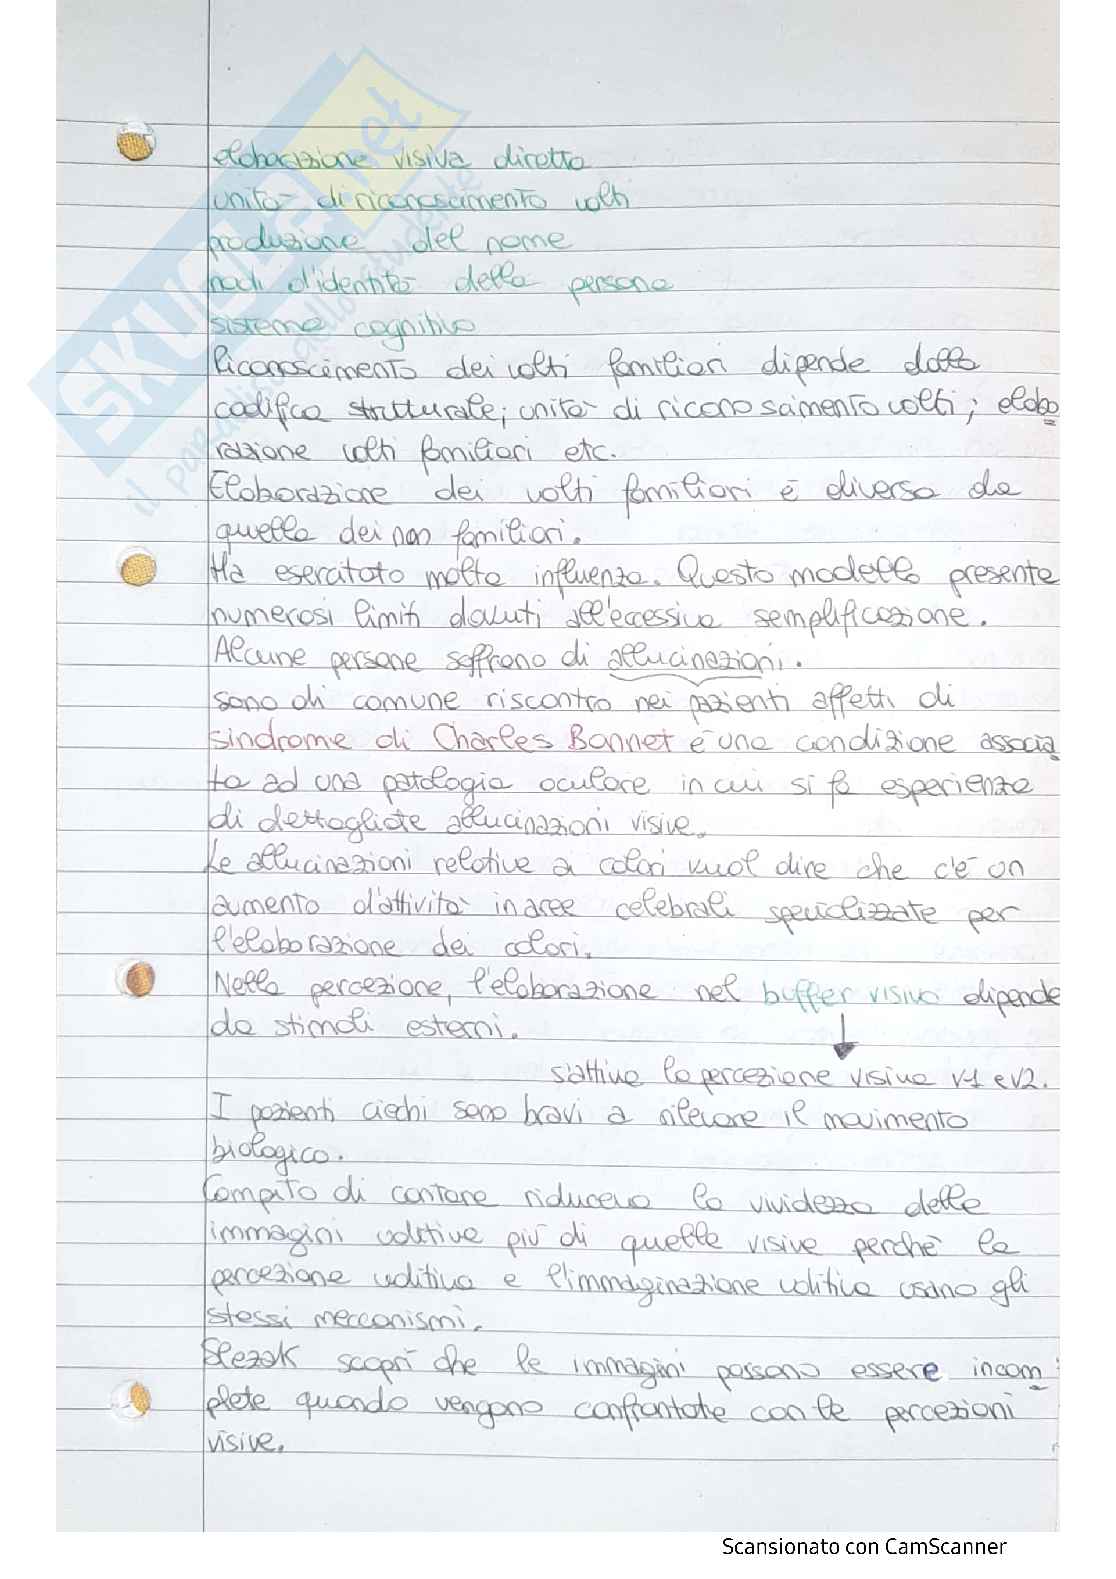 elaborazione visiva diretta
unità di riconoscimento volti
produzione del nome
nodi d'identità della persona
sistema cognitivo
Riconoscimento dei volti familiari dipende dalla
codifica strutturale; unità di riconoscimento volti; elabo
razione volti familiari etc.
Elaborazione dei volti familiari è diversa da
quella dei non familiari.
Ha esercitato molta influenza. Questo modello presenta
numerosi limiti dovuti all'eccessiva semplificazione.
Alcune persone soffrono di allucinazioni.
sono di comune riscontro nei pazienti affetti di
sindrome di Charles Bonnet è una condizione associa
ta ad una patologia oculare in cui si fa esperienza
di dettagliate allucinazioni visive.
Le allucinazioni relative a colori vuol dire che c'è un
aumento d'attività in aree celebrali specializzate per
l'elaborazione dei colori.
Nella percezione, l'elaborazione nel buffer visivo dipende
da stimoli esterni.
s'attiva la percezione visiva v1 e v2.
I pazienti ciechi sono bravi a rilevare il movimento
biologico.
Compito di contare riduceva la vividezza delle
immagini uditive più di quelle visive perchè la
percezione uditiva e l'immaginazione uditiva usano gli
stessi meccanismi.
Slezak scoprì che le immagini possono essere incom
plete quando vengono confrontate con le percezioni
visive.
SKUOLA.net
il paradiso dello studente
Scansionato con CamScanner